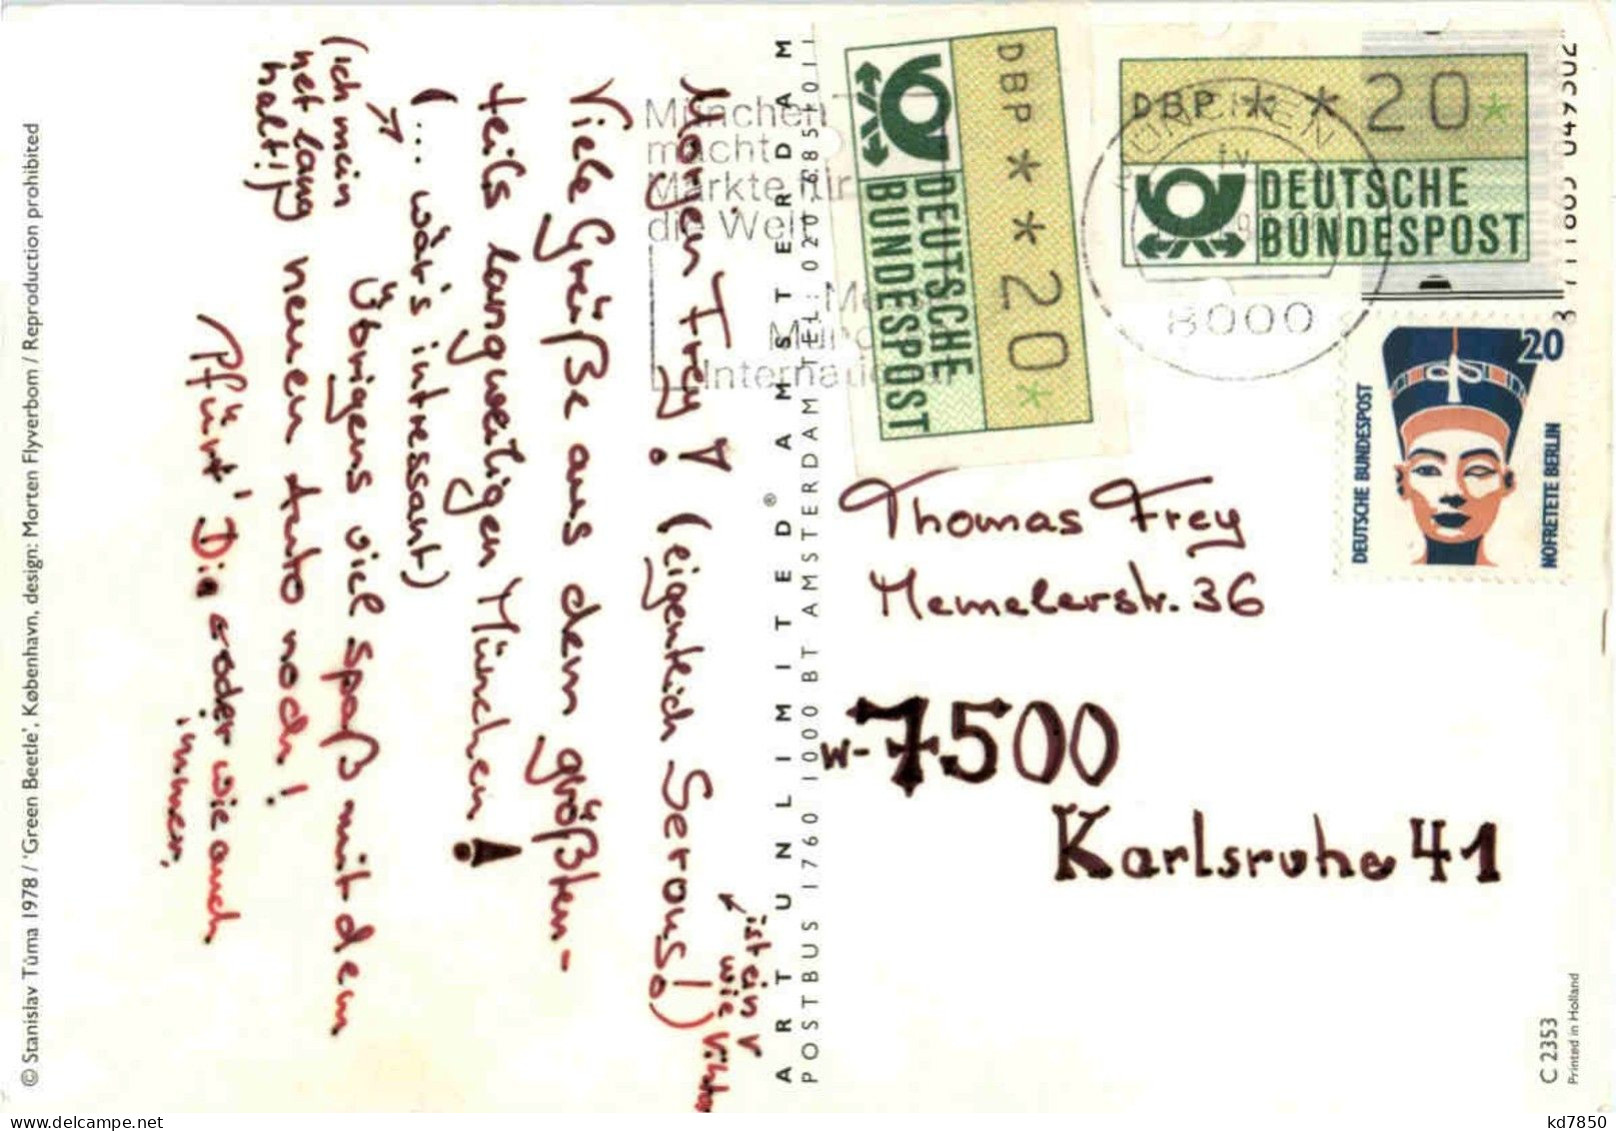 Morgen Frey! (eigentlich Servus!)
ist ein v
wie
Viele Grüße aus dem größten-
teils langweiligen München!
(... wär's intressant)
Übrigens viel Spaß mit dem
neuen Auto noch!
(ich mein
net lang
haltig
Pfürt' Di, oder wie auch
immer.
© Stanislav Tůma 1978 / 'Green Beetle', København, design: Morten Flyverbom / Reproduction prohibited
ART UNLIMITED® AMSTERDAM
POSTBUS 1760 1000 BT AMSTERDAM TEL: 020
München
macht
Märkte für
die Welt
8000
DBP * * 20*
DEUTSCHE
BUNDESPOST
DBP * * 20*
DEUTSCHE
BUNDESPOST
20
DEUTSCHE BUNDESPOST
NOFRETETE BERLIN
Thomas Frey
Memelerstr. 36
W-7500
Karlsruhe 41
C 2353
Printed in Holland
kd7850
delcampe.net